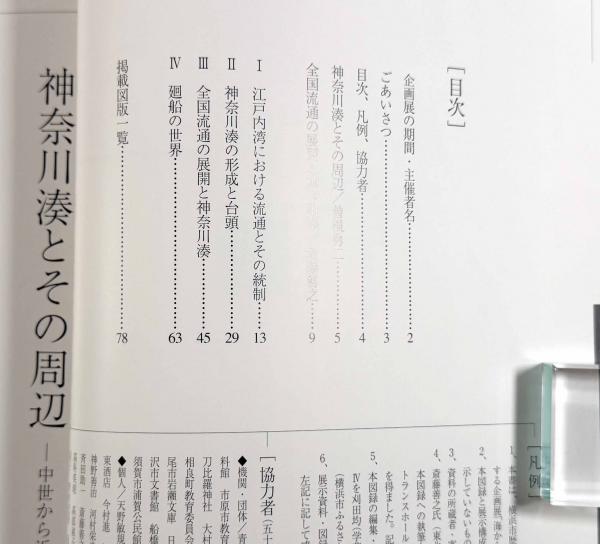 [目次]
企画展の期間・主催者名……2
ごあいさつ……3
目次、凡例、協力者……4
神奈川湊とその周辺／……5
全国流通の展開と……9
Ⅰ 江戸内湾における流通とその統制……13
Ⅱ 神奈川湊の形成と台頭……29
Ⅲ 全国流通の展開と神奈川湊……45
Ⅳ 廻船の世界……63
掲載図版一覧……78
[凡例]
1、本書は、横浜市歴
する企画展「海か
2、本図録と展示構成
示していないもの
3、資料の所蔵者・寄
4、斎藤善之氏（東
本図録への執筆
トランスホール
を得ました。記
5、本図録の編集・
Ⅳを刈田均（学
（横浜市ふるさ
6、展示資料・図録
左記に記して
[協力者]（五十
◆機関・団体／青
料館 市原市教育
刀比羅神社 大村
相良町教育委員会
尾市岩瀬文庫 日
沢市文書館 船橋
須賀市浦賀公民館
◆個人／天野敏規
東酒店 今村進一
神野善治 河村栄
斉田助一 斎藤善
神奈川湊とその周辺
―中世から近